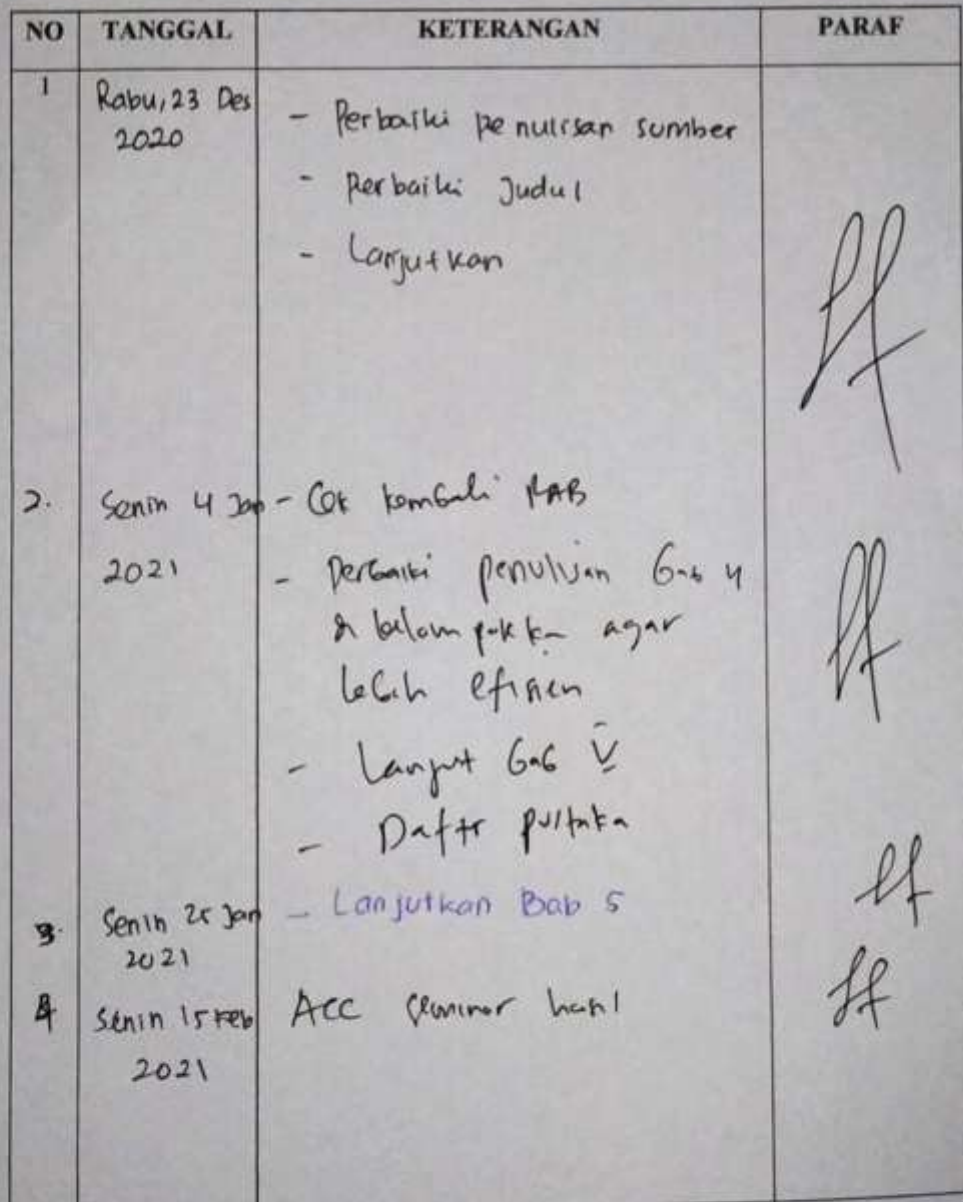 NO TANGGAL KETERANGAN PARAF
1 Rabu, 23 Des - Perbaiki penulisan sumber
2020
- Perbaiki Judul
- Lanjutkan
2. Senin 4 Jan - Cek kembali RAB
2021 - Perbaiki penulisan bab 4
& kelompokkan agar
lebih efisien
- Lanjut bab V
- Daftr pustaka
3. Senin 25 Jan - Lanjutkan Bab 5
2021
4 Senin 15 Feb ACC seminar hasil
2021